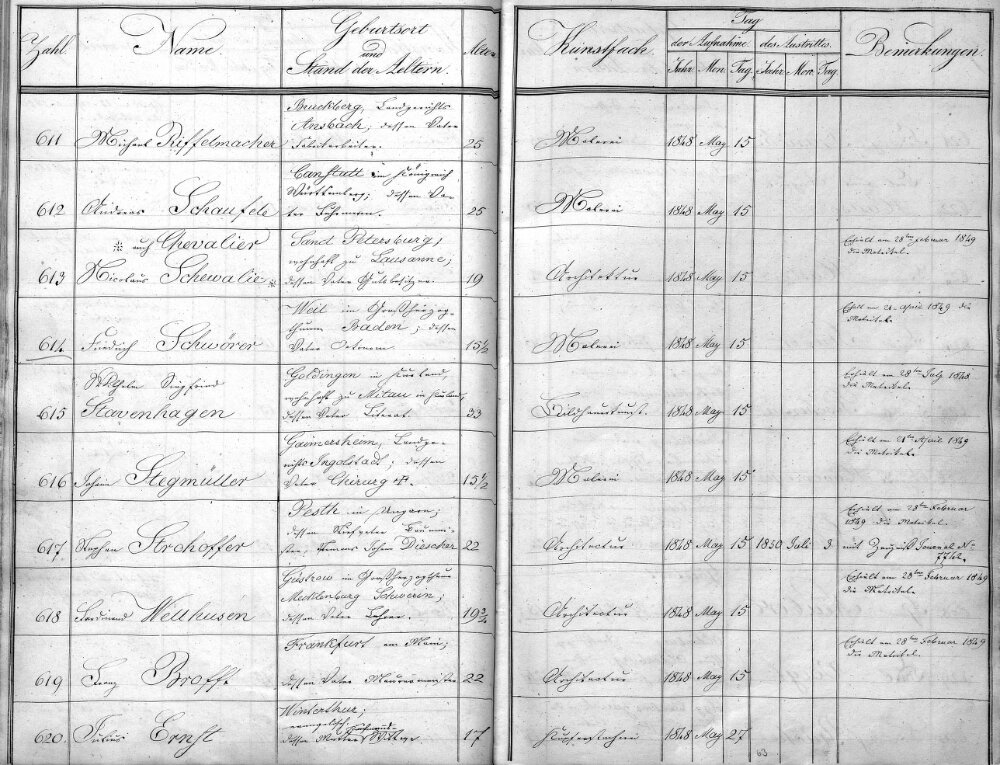 Zahl. Name. Geburtsort und Stand der Aeltern. Alter Kunstfach. Tag Bemerkungen.
der Aufnahme des Austrittes
Jahr Mon. Tag. Jahr Mon. Tag.
Bruckberg, Landgerichts
Ansbach; dessen Vater
611 Michael Riffelmacher Fabrikarbeiter. 25 Malerei 1848 May 15
Canstatt im Königreich
Württemberg; dessen Va-
612 Andreas Schaufele ter 25 Malerei 1848 May 15
※ auch Chevalier Sand Petersburg, Erhielt am 28ten Februar 1849
wohnhaft zu Lausanne; die Matrikel.
613 Nicolaus Schewalie※ dessen Vater Gutsbesitzer. 19 Architektur 1848 May 15
Weil im Großherzog- Erhielt am 21 April 1849 die
thum Baden; dessen Matrikel.
614 Friedrich Schwörer Vater 15 1/2 Malerei 1848 May 15
Wilhelm Siegfried Goldingen in Kurland, Erhielt am 28ten July 1848
wohnhaft zu Mitau in Kurland, die Matrikel.
615 Stavenhagen dessen Vater Literat. 33 Bildhauerkunst. 1848 May 15
Gaimersheim, Landge- Erhielt am 21ten April 1849
richts Ingolstadt; dessen die Matrikel.
616 Johann Stegmüller Vater Chirurg 15 1/2 Malerei 1848 May 15
Pesth in Ungarn; Erhielt am 28ten Februar
dessen 1849 die Matrikel.
617 Stephan Strohoffer Johann Diescher 22 Architectur 1848 May 15 1850 Juli 3 mit Zeugniß Journal No
Güstrow im Großherzogthum Erhielt am 28ten Februar 1849
Mecklenburg Schwerin; die Matrikel.
618 Ferdinand Welthusen dessen Vater Lehrer. 19 3/4 Architectur 1848 May 15
Frankfurt am Main; Erhielt am 28ten Februar 1849
die Matrikel.
619 Franz Brofft dessen Vater Maurermeister 22 Architectur 1848 May 15
Winterthur;
evangelisch.
620. Julius Ernst dessen Mutter Wittwe. 17 Kupferstecherei 1848 May 27
63